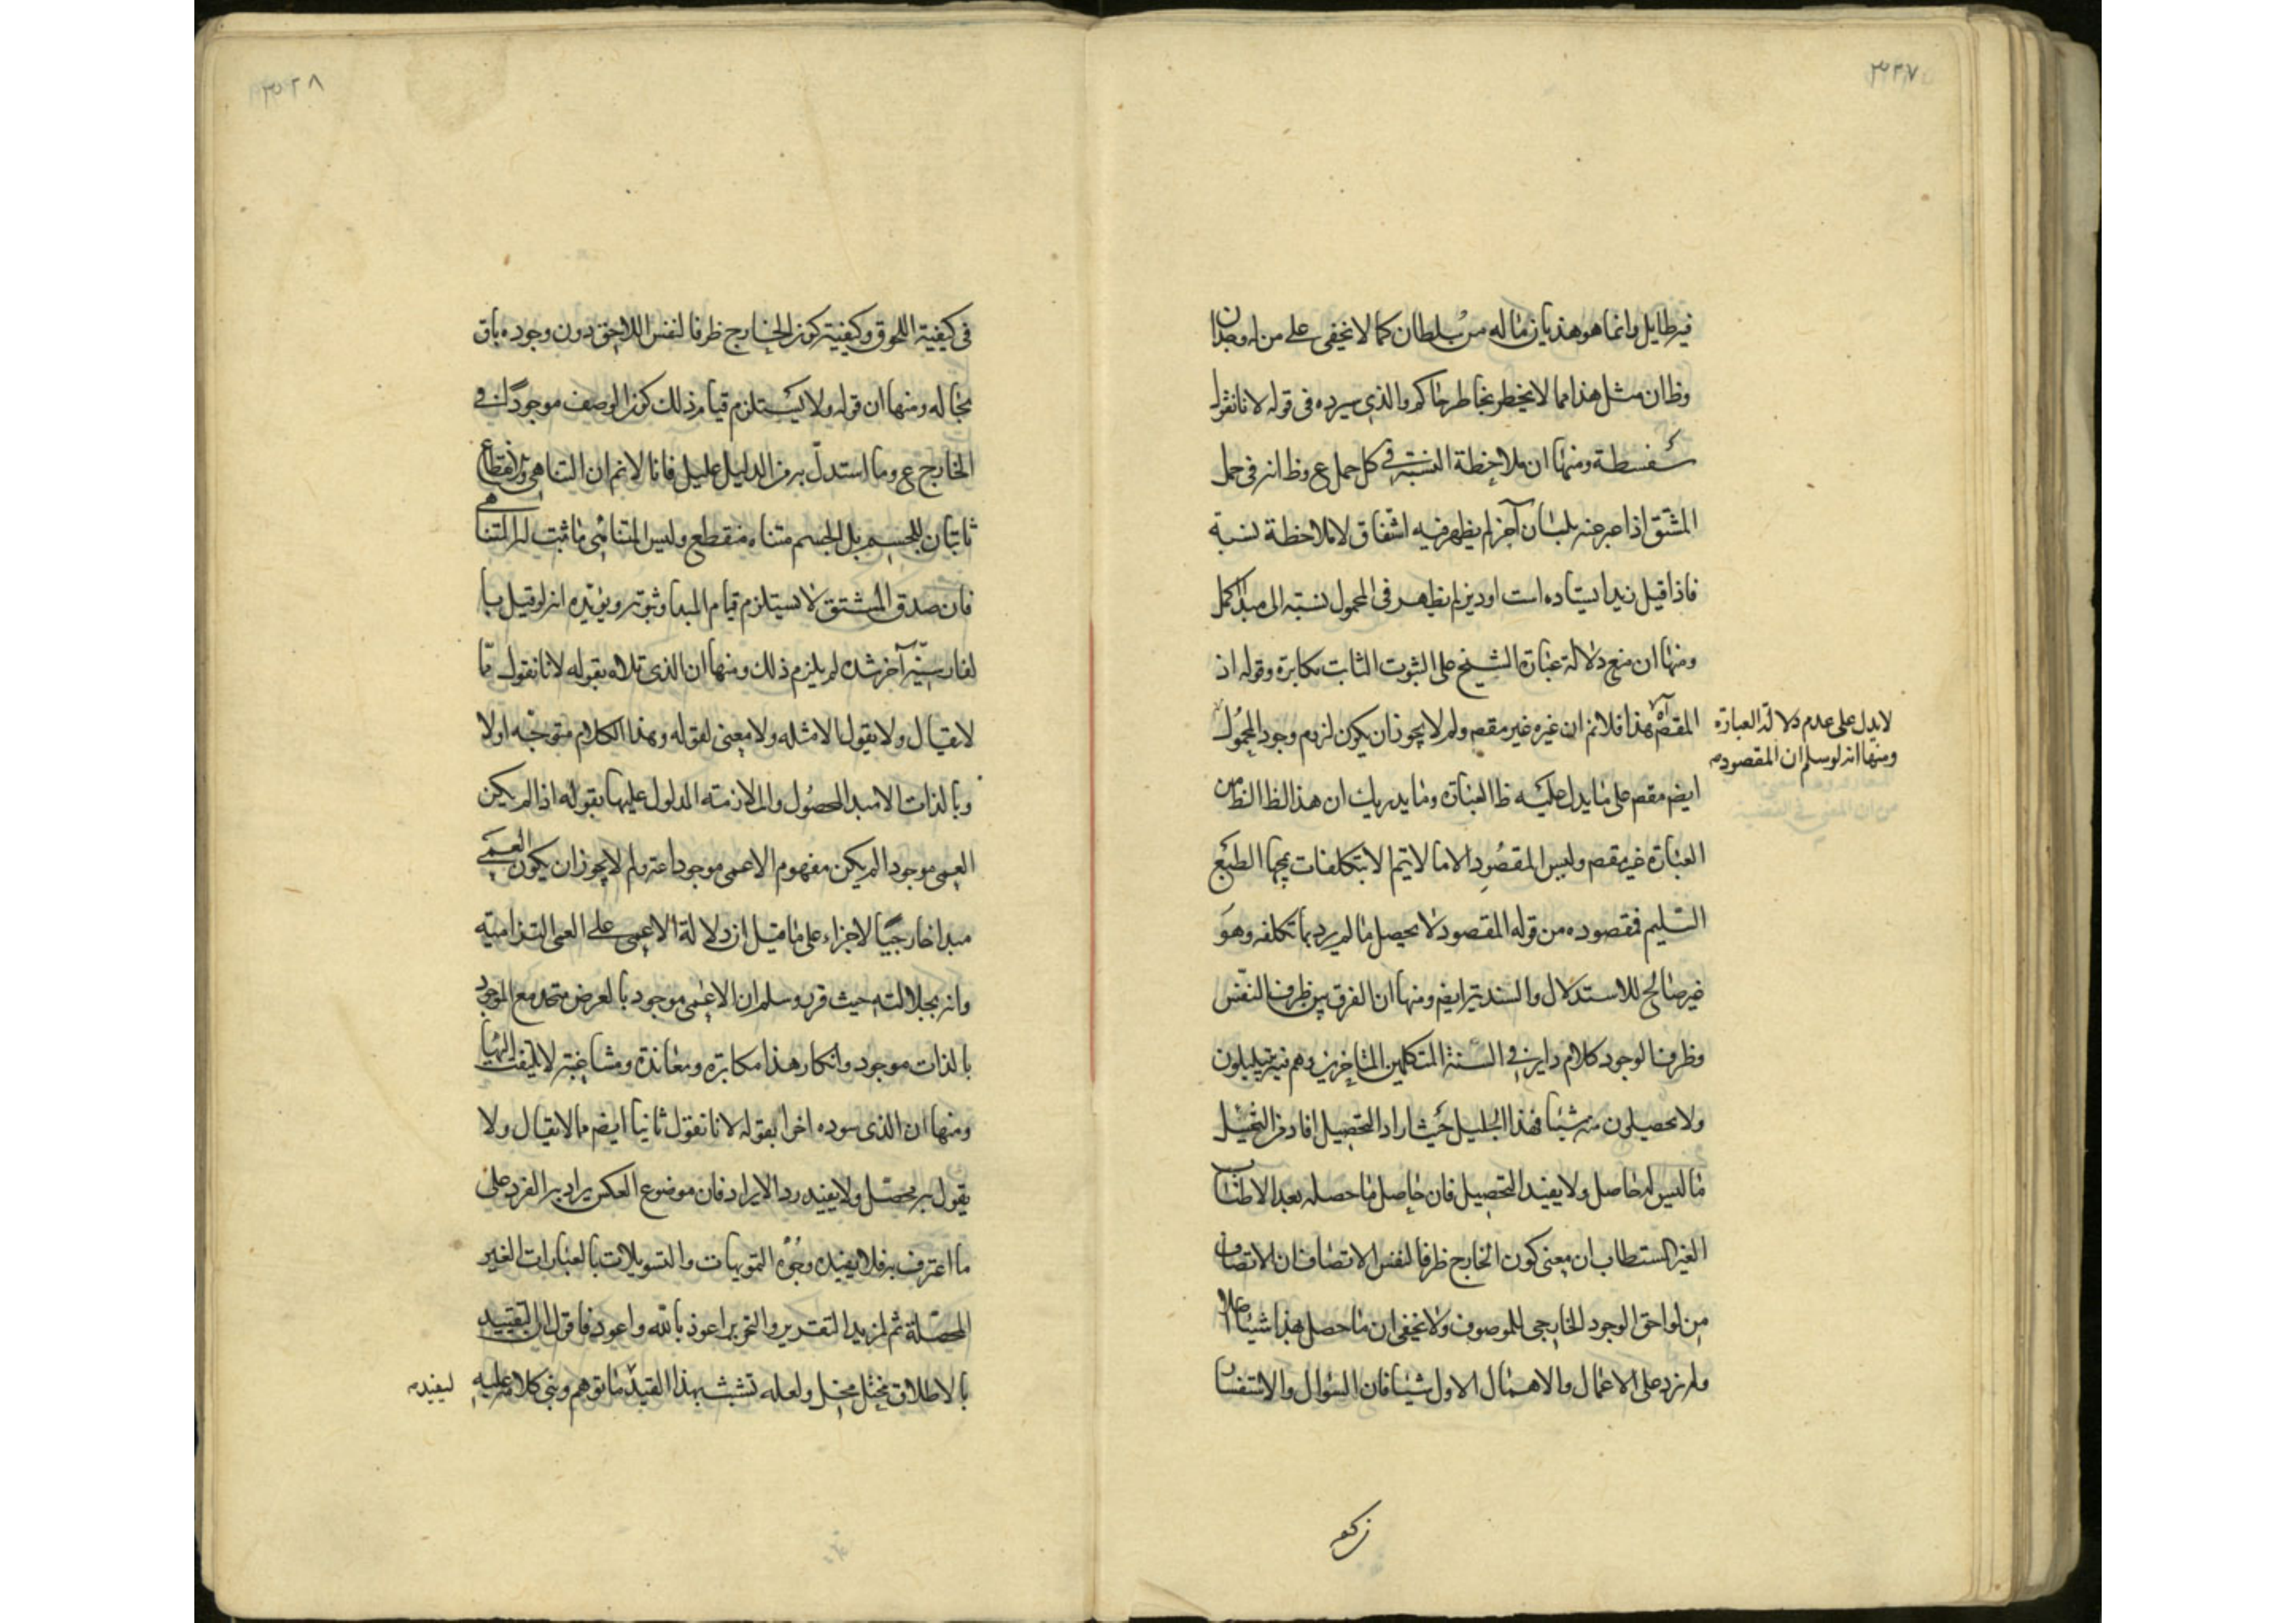 ٣٢٧
فيه طايل وانما هو هذيان ماله من سلطان كما لا يخفى على من له وجدان
وظ ان مثل هذا مما لا يخطر بخاطر حاكم والذي سيرده في قوله لانا نقول
سفسطة ومنها ان ملاحظة النسبة في كل حمل ع وظ انه في حمل
المشتق اذا عبر عنه بلسان آخر لم يظهر فيه اشتقاق لا ملاحظة نسبة
فاذا قيل زيد ايستاده است او ديز لم يظهر في المحمول نسبته الى مبدا كحمل
ومنها ان منع دلالة عبارة الشيخ على الثبوت الثابت مكابرة وقوله ان
المقصود هذا فلانم ان غيره غير مقصه ولم لا يجوز ان يكون لزوم وجود المحمول
لا يدل على عدم دلالة العبارة
ومنها انه لو سلم ان المقصود
ايضه مقصه على ما يدل عليه ظ العبارة وما يدريك ان هذا الظ الظ من
العبارة غير مقصه وليس المقصود الا ما لا يتم الا بتكلفات يمجها الطبع
السليم فمقصوده من قوله المقصود لا يحصل ما لم يرد بما تكلفه وهو
غير صالح للاستدلال والسندية ايضه ومنها ان الفرق بين ظرف النفس
وظرف الوجود كلام داير في السنة المتكلمين المتاخرين وهم فيه يقلقلون
ولا يحصلون منه شيئا فهذا الجليل حيث اراد التحصيل افاد من التخيل
ما ليس له حاصل ولا يفيد التحصيل فان حاصل ما حصله بعد الاطناب
الغير المستطاب ان معنى كون الخارج ظرفا لنفس الاتصاف ان الاتصاف
من لواحق الوجود الخارجي للموصوف ولا يخفى ان ما حصل بهذا شيئا اصلا
ولم يزد على الاعمال والاهمال الاول شيئا فان السؤال والاستفسار
٣٢٨
في كيفية اللحوق وكيفية كون الخارج ظرفا لنفس اللاحق دون وجوده باق
بحاله ومنها ان قوله ولا يستلزم قيام ذلك كون الوصف موجودا في
الخارج ع وما استدل به من الدليل عليل فانا لا نم ان التناهي والانقطاع
ثابتان للجسم بل الجسم متناه منقطع وليس المتناهي ما ثبت له التناهي
فان صدق المشتق لا يستلزم قيام المبدا وثبوته ويؤيده انه لو قيل
آخر شده لم يلزم ذلك ومنها ان الذي تلاه بقوله لانا نقول مما
لا يقال ولا يقول الامثله ولا معنى لقوله وهذا الكلام متوجه اولا
وبالذات الا مبدا لمحصول والملازمته المدلول عليها بقوله اذا لم يكن
العمى موجودا لم يكن مفهوم الاعمى موجودا عنه ولم لا يجوز ان يكون العمى
مبدا خارجيا لا جزاء على ما قيل ان دلالة الاعمى على العمى التزامية
وانه بجلالته حيث قرر وسلم ان الاعمى موجود بالعرض متحد مع الموجود
بالذات موجود وانكار هذا مكابرة ومعاندة ومشاغبة لا يلتفت اليها
ومنها ان الذي سوده اخرا بقوله لانا نقول ثانيا ايضه مما لا يقال ولا
يقول به محصل ولا يفيد رد الايراد فان موضوع العكس يراد به الفرد على
ما اعترف به فلا يفيده وجوه التمويهات والتسويلات بالعبارات الغير
المحصلة ثم لمزيد التقدير والتحرير اعوذ بالله واعود فاقول ان التقييد
بالاطلاق مختل مخل ولعله تشبث بهذا القيد ما توهم وبنى كلامه عليه
ليفيد